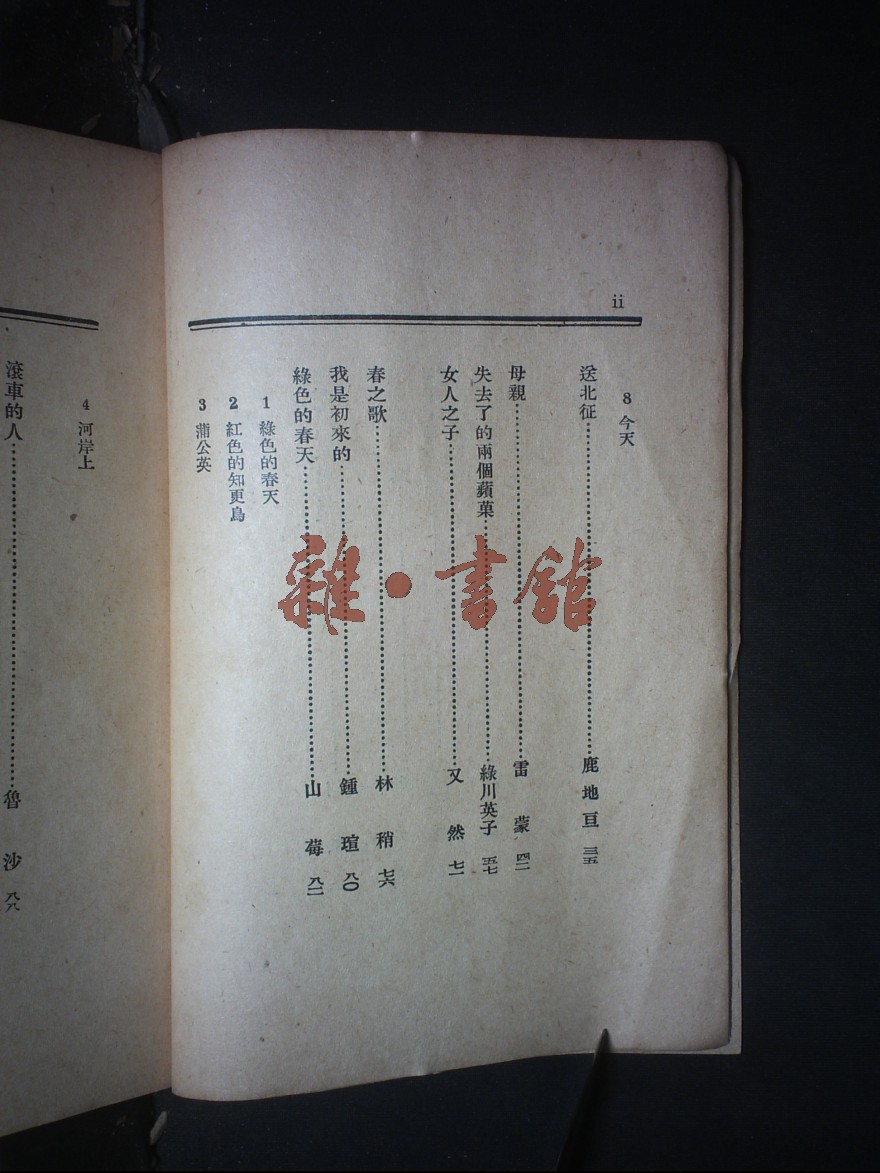 ii
8 今天
送北征……鹿地亘 三五
母親……雷蒙 四二
失去了的兩個蘋菓……綠川英子 五七
女人之子……又然 七一
春之歌……林稍 七六
我是初來的……鍾瑄 八〇
綠色的春天……山莓 八二
1 綠色的春天
2 紅色的知更鳥
3 蒲公英
4 河岸上
滾車的人……魯沙 八八
雜·書館